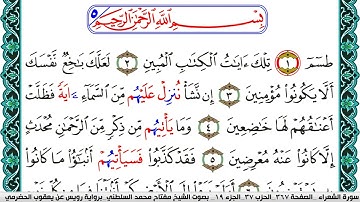 ٥
بِسْمِ ٱللَّهِ ٱلرَّحْمَٰنِ ٱلرَّحِيمِ
طسٓمٓ ١ تِلْكَ ءَايَٰتُ ٱلْكِتَٰبِ ٱلْمُبِينِ ٢ لَعَلَّكَ بَٰخِعٌ نَّفْسَكَ
أَلَّا يَكُونُوا۟ مُؤْمِنِينَ ٣ إِن نَّشَأْ نُنزِلْ عَلَيْهُم مِّنَ ٱلسَّمَآءِ ءَايَةً فَظَلَّتْ
أَعْنَٰقُهُمْ لَهَا خَٰضِعِينَ ٤ وَمَا يَأْتِيهُم مِّن ذِكْرٍ مِّنَ ٱلرَّحْمَٰنِ مُحْدَثٍ
إِلَّا كَانُوا۟ عَنْهُ مُعْرِضِينَ ٥ فَقَدْ كَذَّبُوا۟ فَسَيَأْتِيهُمْ أَنۢبَٰٓؤُا۟ مَا كَانُوا۟
سورة الشعراء الصفحة ٣٦٧ الحزب ٣٧ الجزء ١٩ بصوت الشيخ مفتاح محمد السلطني برواية رويس عن يعقوب الحضرمي